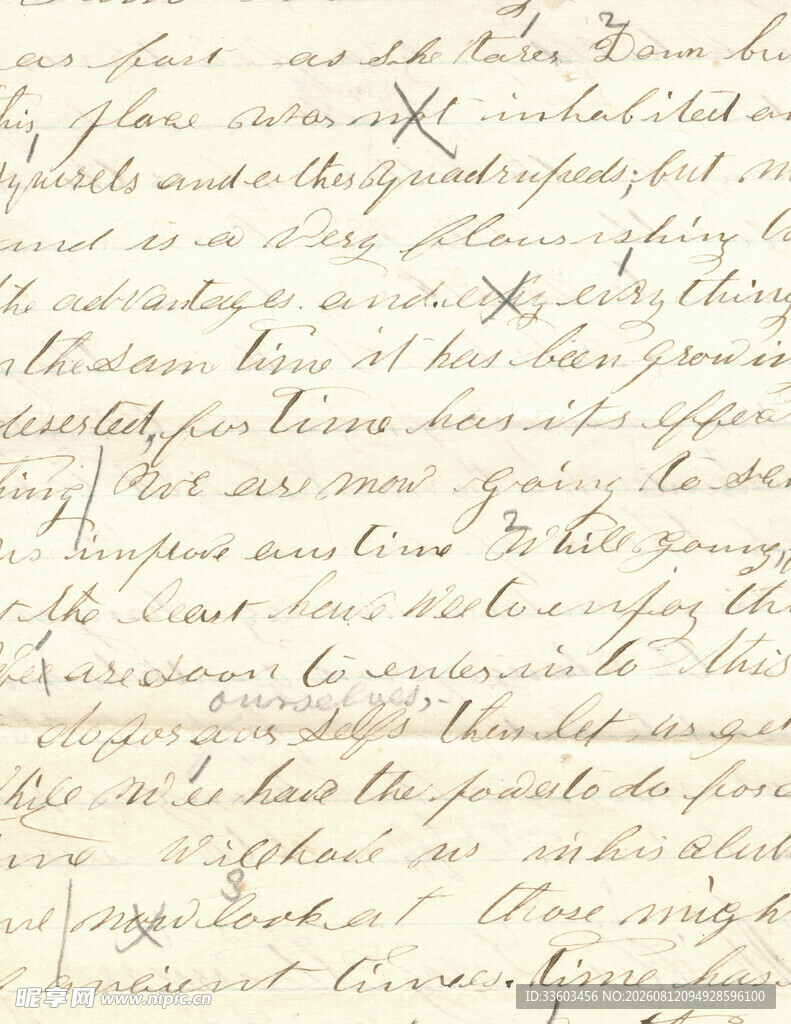 as fast as she tares Down bu
this place was not inhabited
squirels and other quadrupeds; but
and is a Very flourishing
the advantages. and. evry evry thing
the sam time it has been growin
deserted, for Time has its effec
thing We are now going to
us improve our time While young,
the least have Wee to injoy th
Wee are soon to enter in to this
ourselves,-
do for our selfs then let us get
While Wee have the power to do for
time Will have us in his clut
now look at those migh
ancient times. Time has
昵享网 www.nipic.cn
ID:33603456 NO:20260812094928596100